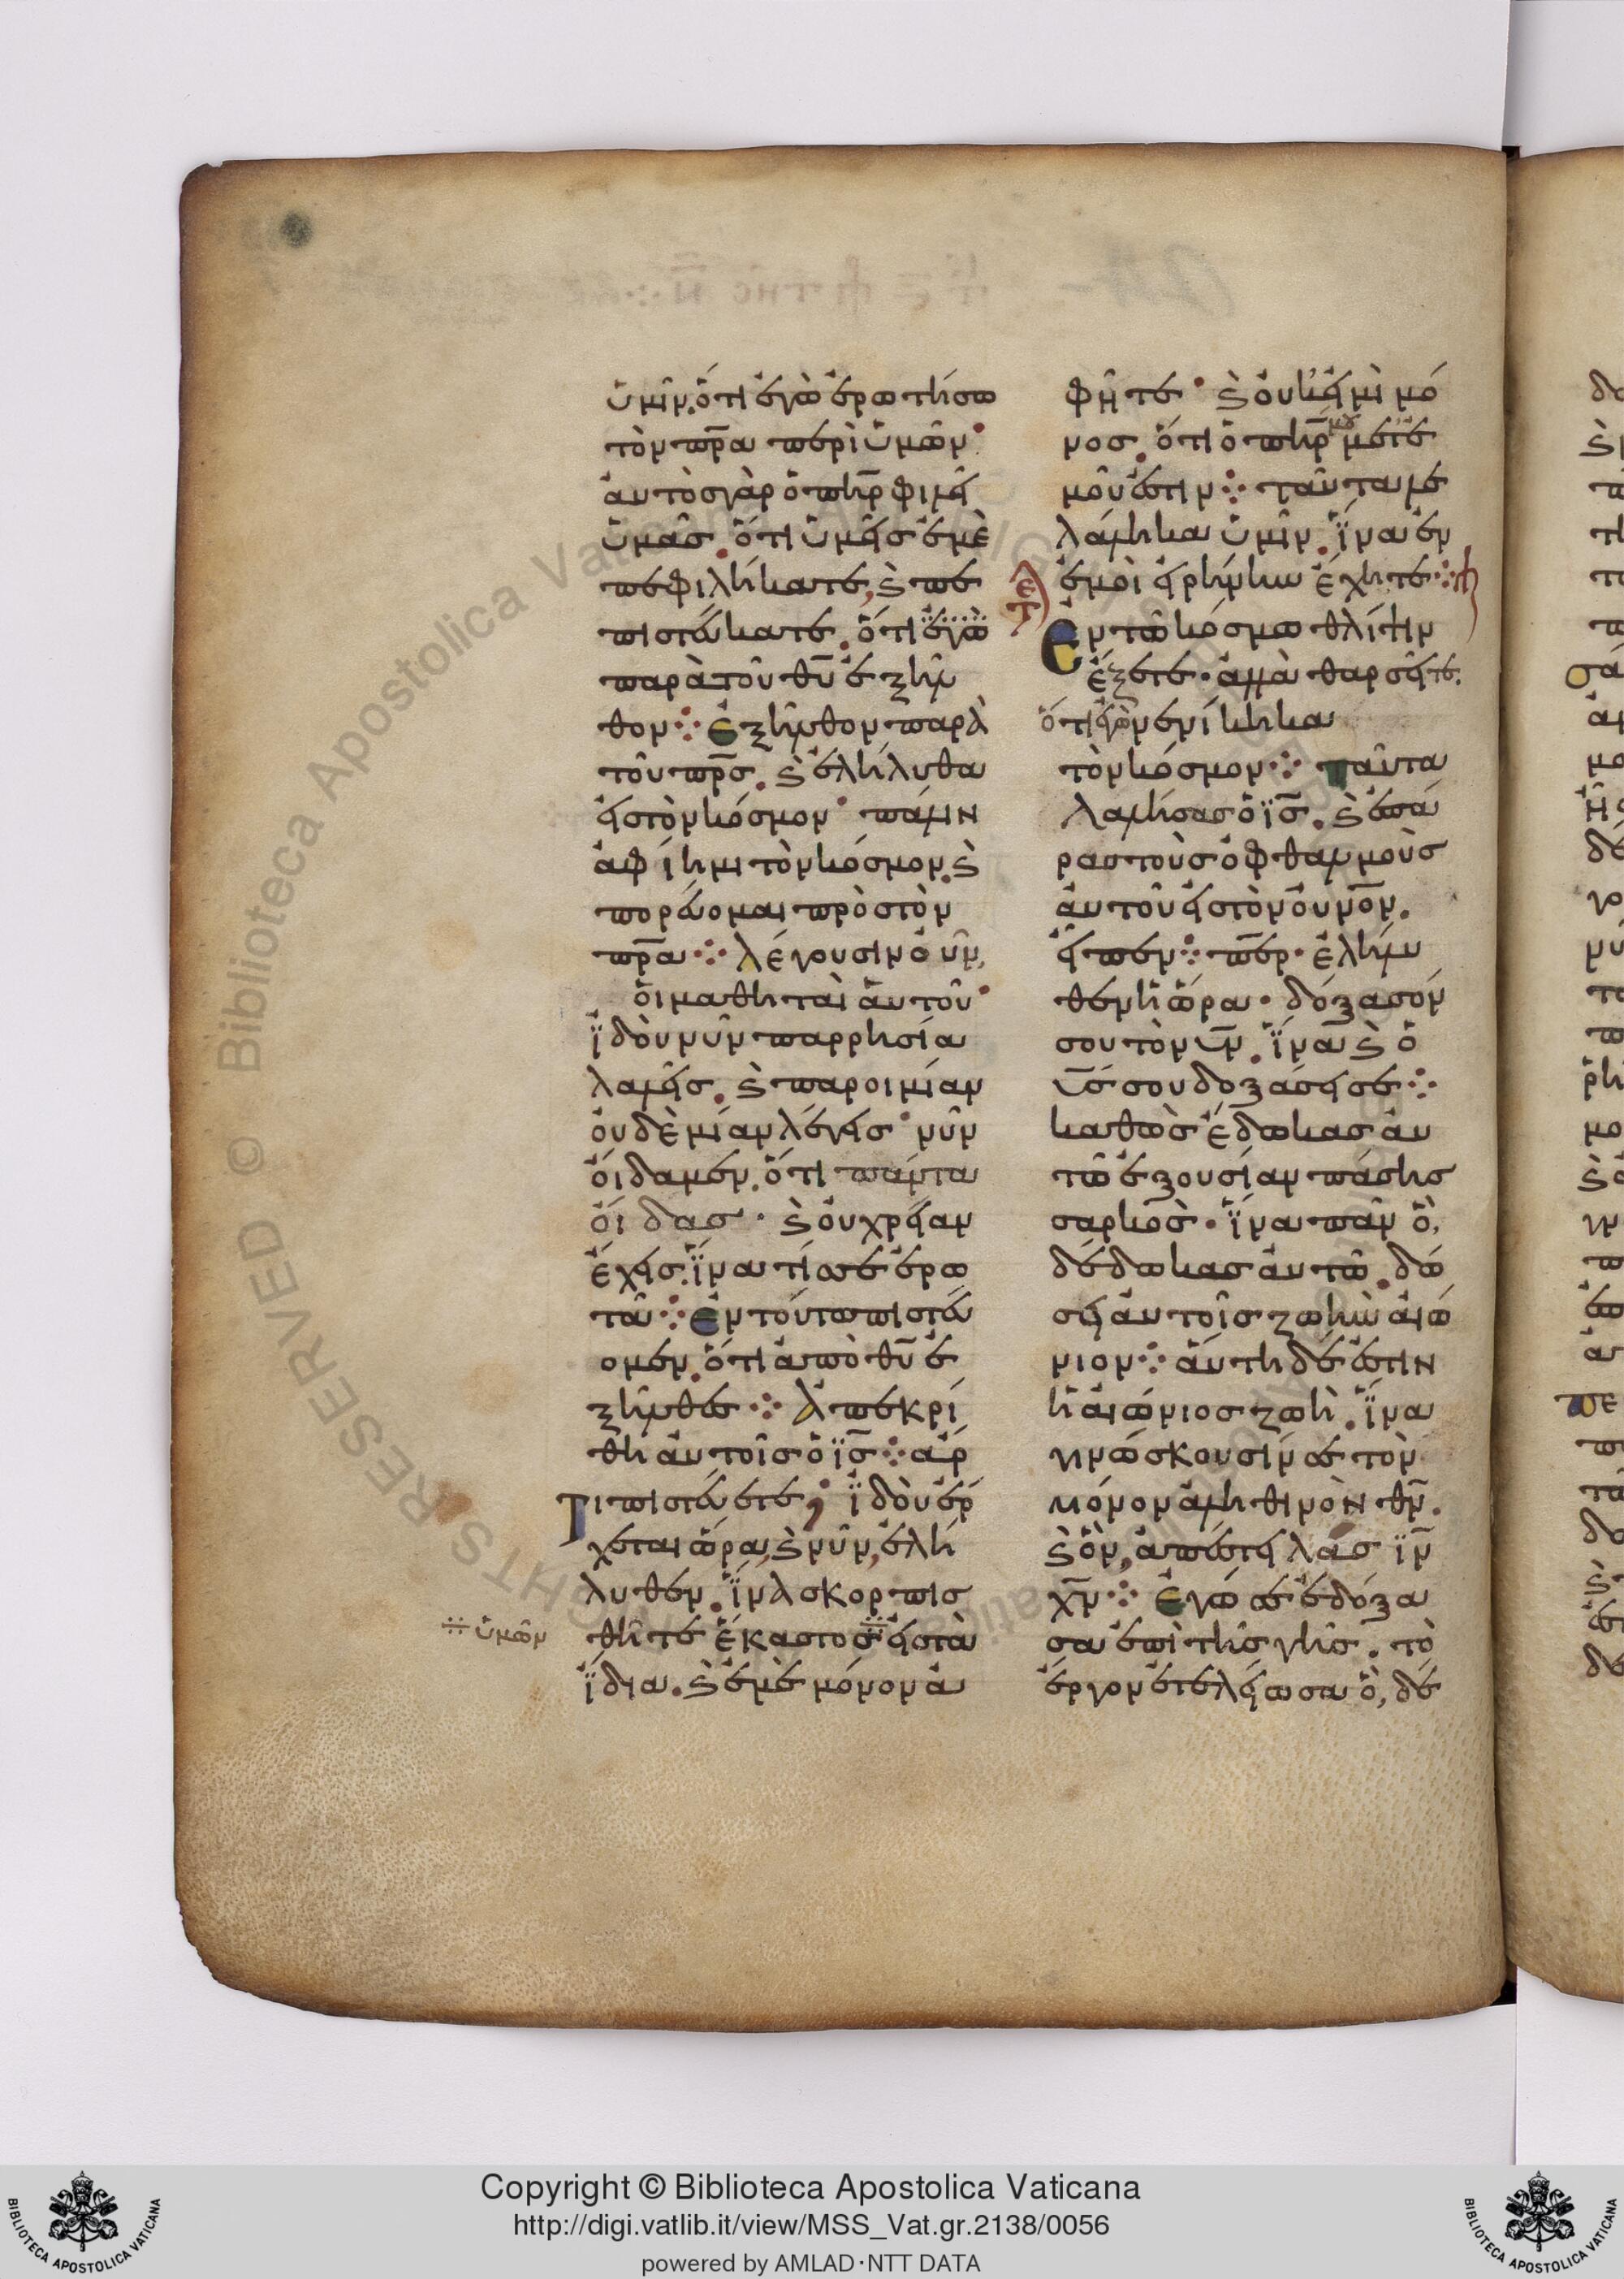 ὑμῖν. ὅτι ἐγὼ ἐρωτήσω
τὸν πρ̅α περὶ ὑμῶν·
ἀυτὸς γὰρ ὁ πηρ̅ φιλεῖ
ὑμᾶς. ὅτι ὑμεῖς ἐμὲ
πεφιλήκατε, ϗ̀ πε
πιστεύκατε. ὅτι ἐγὼ
παρὰ τοῦ θυ̅ ἐξῆλ
θον⁘ Ἐξῆλθον παρὰ
τοῦ πρ̅ς. ϗ̀ ἐλήλυθα
εἰς τὸν κόσμον· πάλιν
ἀφίημι τὸν κόσμον. ϗ̀
πορεύομαι πρὸς τὸν
πρ̅α⁘ λέγουσιν ὀυν,
ὅι μαθηταὶ ἀυτοῦ·
ἴδὸυ νῦν παρρησία
λαλεῖς. ϗ̀ παροιμίαν
ὀυδὲ μίαν λέγεις· νῦν
ὀίδαμεν. ὅτι πάντα
ὀίδας· ϗ̀ ὀυ χρείαν
ἔχεις. ἵνα τίς σε ἐρω
τᾶ⁘ Ἐν τούτω πιστεύ
ομεν. ὅτι ἀπὸ θυ̅ ἐ
ξῆλθες⁘ Ἀπεκρί
θη ἀυτοῖς ὁ ις̅⁘ ἄρ
Τι πιστεύετε; ἴδὸυ ἔρ
χεται ὥρα, ϗ̀ νῦν, ἐλή
λυθεν. ἵνα σκορπισ
※ ὑμῶν
θῆτε ἕκαστος ※ εἰς τὰ
ἴδια. ϗ̀ ἐμὲ μόνον ἀ
φῆτε· ϗ̀ ὀυκ εἰμὶ μό
νος. ὅτι ὁ πηρ̅ μου μετ ἐ
μοῦ ἐστιν⁘ ταῦτα λε
λάληκα ὑμῖν. ἵνα ἐν
ἐμοὶ εἰρήνην ἔχητε⁘
Ἐν τῶ κόσμω θλίψιν
ἕξετε· ἀλλὰ θαρσεῖτε.
ὅτι ἐγὼ νενίκηκα
τὸν κόσμον⁘ Ταῦτα
λαλήσας ὁ ις̅. ϗ̀ ἐπά
ρας τοὺς ὀφθαλμοὺς
ἀυτοῦ εἰς τὸν ὀυνο̅ν.
εἶπεν⁘ πε̅ρ· ἐλήλυ
θεν ἡ ὥρα· δόξασόν
σου τὸν υν̅. ἵνα ϗ̀ ὁ
υς̅ σου δοξάσει σε⁘
καθὼς ἔδωκας ἀυ
τῶ ἐξουσίαν πάσης
σαρκός· ἵνα πᾶν ὃ,
δέδωκας ἀυτῶ. δώ
σει ἀυτοῖς ζωὴν ἀιώ
νιον⁘ ἄυτη δέ ἐστιν
ἡ ἀιώνιος ζωὴ. ἵνα
γινώσκουσίν σε τὸν
μόνον ἀληθινὸν θν̅.
ϗ̀ ὃν, ἀπέστειλας ιν̅
χν̅⁘ Ἐγώ σε ἐδόξα
σα ἐπὶ τῆς γῆς. τὸ
ἔργον ἐτελείωσα ὃ, δέ
Copyright © Biblioteca Apostolica Vaticana
http://digi.vatlib.it/view/MSS_Vat.gr.2138/0056
powered by AMLAD·NTT DATA
BIBLIOTECA APOSTOLICA VATICANA